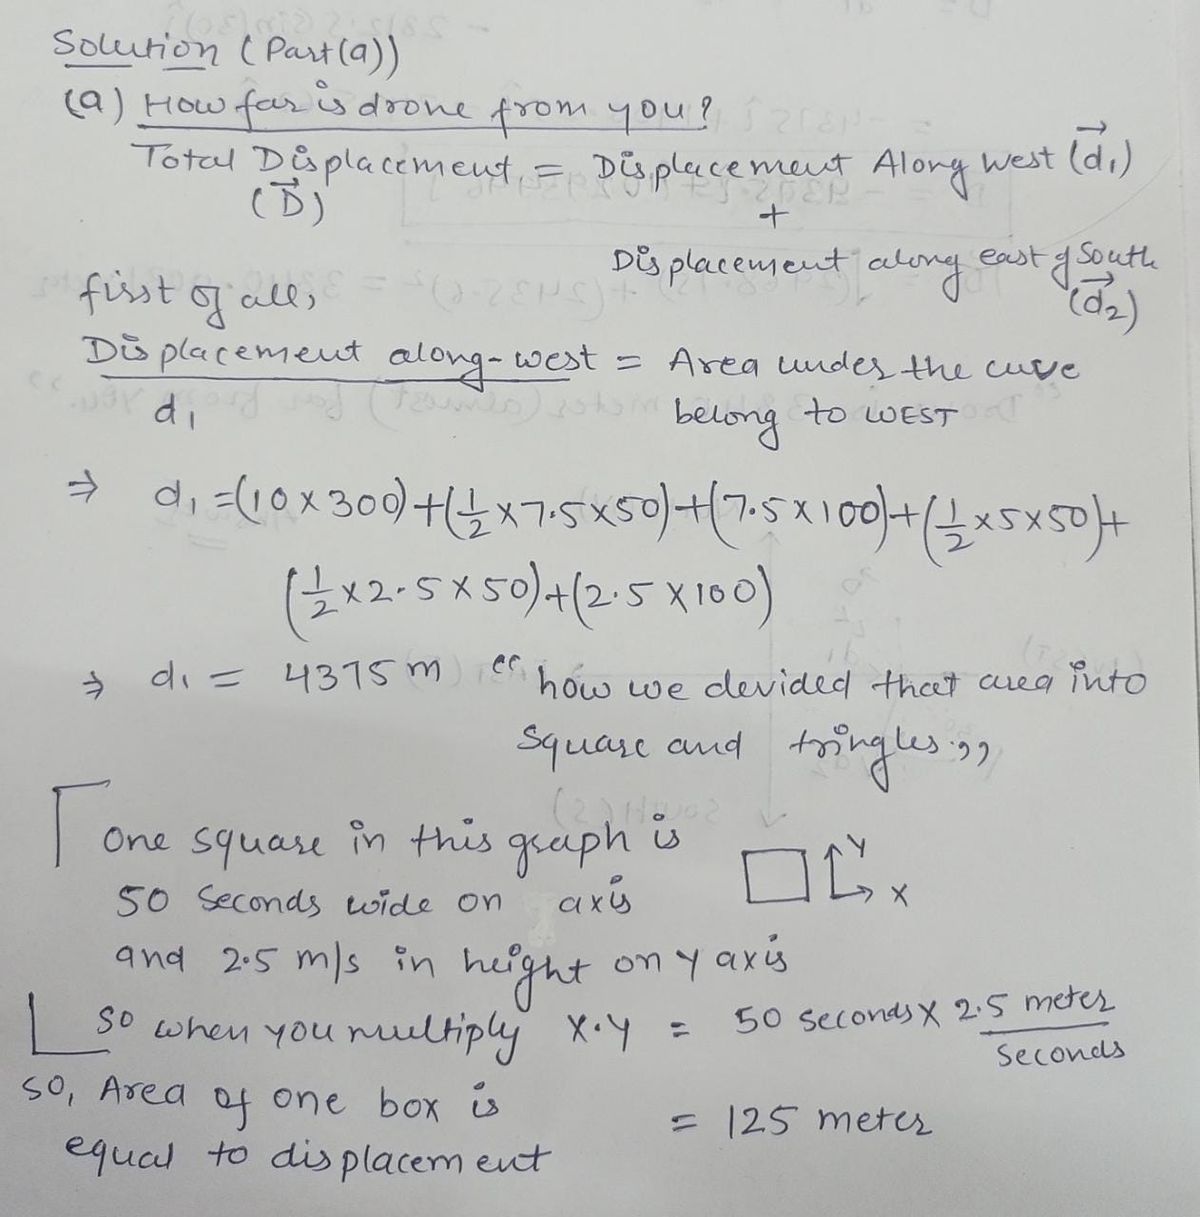 Solution (Part(a))
(a) How far is drone from you?
Total Displacement = Displacement Along west (d₁)
(D)
+
Displacement along east of South
(d₂)
first of all,
Displacement along-west = Area under the cuve
d₁ belong to WEST
⇒ d₁ =(10×300)+(1/2×7.5×50)+(7.5×100)+(1/2×5×50)+
(1/2×2.5×50)+(2.5×100)
⇒ d₁ = 4375 m “how we devided that area into
Square and tringles.”
One square in this graph is
50 Seconds wide on axis
Y
X
and 2.5 m/s in height on Y axis
so when you multiply X.Y = 50 seconds × 2.5 meter/Seconds
so, Area of one box is
= 125 meter
equal to displacement